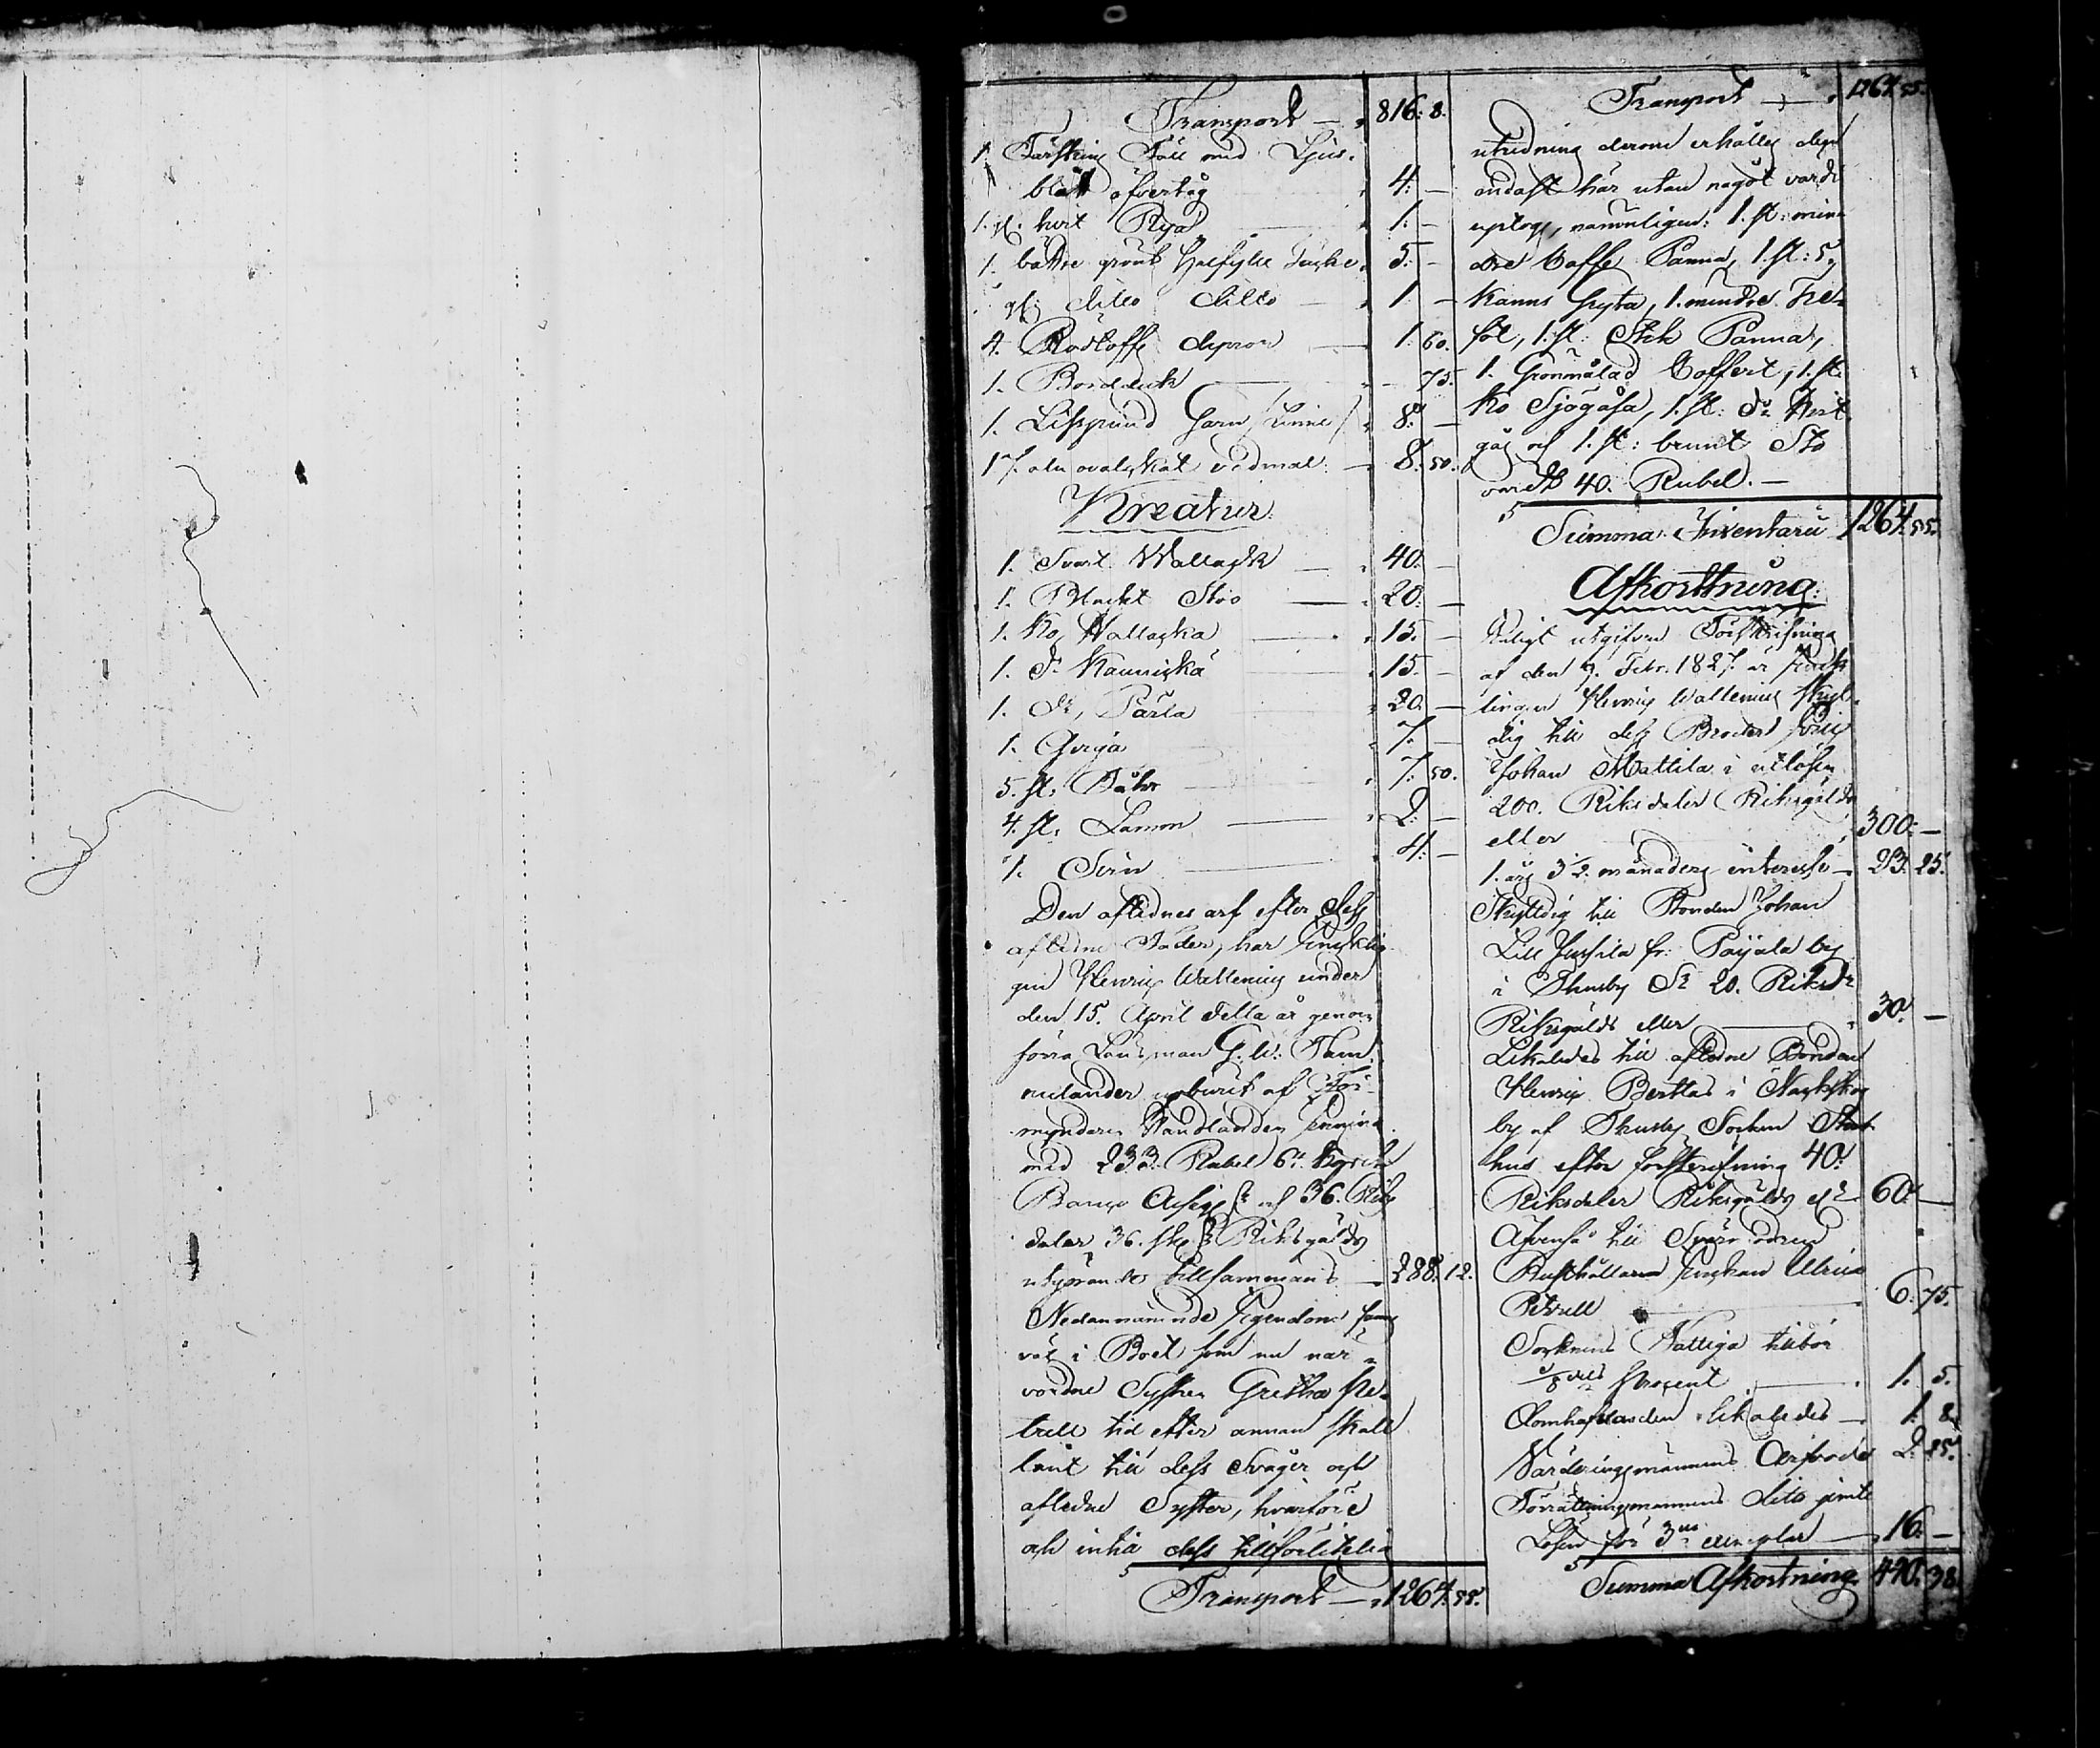 Transport — 816. 8.
1. Fårskins Fäll med Ljus-
blått öfvertåg 4. —
1. gl. hvit Rya 1. —
1. bättre grönt Halfylle Täcke 5. —
1. gl. ditto ditto — 1. —
4. Bladtoffs dynor — 1. 60.
1. Bordduk — 75.
1. Lisspund Garn /Linne/ 8. —
17. aln ovalskat vadmal — 8. 50.
Kreatur:
1. Svart Wallack — 40. —
1. Blackt Sto — 20. —
1. Ko Wallaska — 15. —
1. Do Kauniska — 15. —
1. Do Pärla 20. —
1. Qviga 7. —
5. st: Fåhr 7. 50.
4. st: Lamm — 2. —
1. Svin — 4. —
Den aflednes arf efter dess
afledne Fader, har
gen Henric Wallenius under
den 15. April detta år genom
förra Länsman G. W. Tam-
melander upburit af För-
myndaren Handlanden
med 233. Rubel 6. Kopek
Banco Assig: och 36. Riks
daler 36. sk. Riksgälds
utgörande tillsammans — 288. 12.
Nedannämnde Egendom fans
väl i Boet som nu när-
vordne Syster Gretha Pe-
trell tid efter annan skall
lånt till dess Svåger och
afledne Syster, hvarföre
och intill dess tillförlitelig
Transport — 1264. 55.
Transport — 1264. 55.
utredning derom erhålles
endast här utan något värde
uptogs, nämnligen: 1. st: min-
dre Caffe Panna, 1. st: 5.
Kanns Gryta, 1. mindre Ke-
sel, 1. st: Stek Panna,
1. Grönmålad Coffert, 1. st.
Ko Sjögåsa, 1. st: Do Hvit
gås och 1. st: brunt Sto
om 40. Rubel. —
Summa Inventarii 1264. 55.
Afkortning:
Enligt utgifven Förskrifning
af den 9. Febr. 1827. är
lingen Henric Wallenius skyl-
dig till dess Broder
Johan Mattila i utlösen
200. Riksdaler Riksgälds
eller 300. —
1. års 3 1/2 månaders interesse — 23. 25.
Skyldig till Bonden Johan
Lill Jussila fr: Paijala by
i Thusby So 20. Riksdr
Riksgälds eller — 30. —
Likaledes till afledne Bonden
Henric Berttas i Nackskog
by af Thusby Socken
hus efter förskrifning 40.
Riksdaler Riksgälds elr 60. —
Äfvenså till Svärmodren
Rusthållare Enkan Ulrica
Petrell — 6. 75.
Socknens Fattiga tillkör
1/8 dels Procent — 1. 5.
Domhafvanden likaledes — 1. 8.
Värderingsmännens Arfvode 2. 25.
Förrättningsmannens dito jemte
Lösen för 3ne exemplar — 16. —
Summa Afkortning 440. 38.